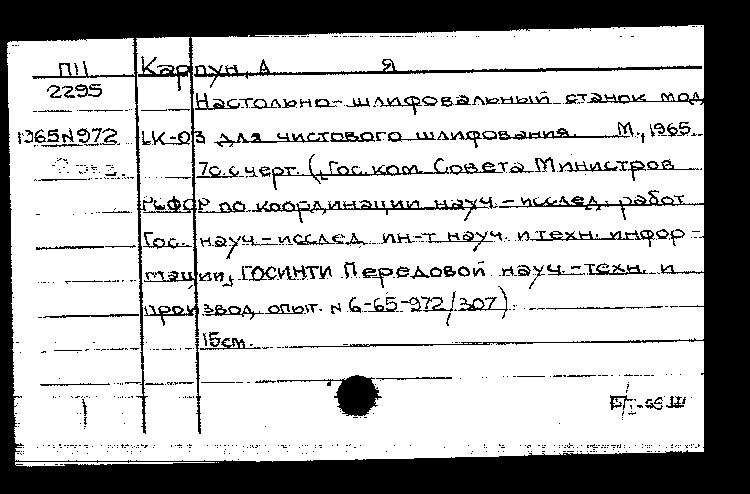 ПII Карпун, А Я
2295
Настольно-шлифовальный станок мод
1965 N972 LK-03 для чистового шлифования. М., 1965.
7с. с черт. (Гос. ком Совета Министров
РСФСР по координации науч-исслед. работ
Гос. науч-исслед ин-т науч. и техн. инфор-
мации, ГОСИНТИ Передовой науч-техн. и
производ, опыт. N 6-65-972/307).
15см.